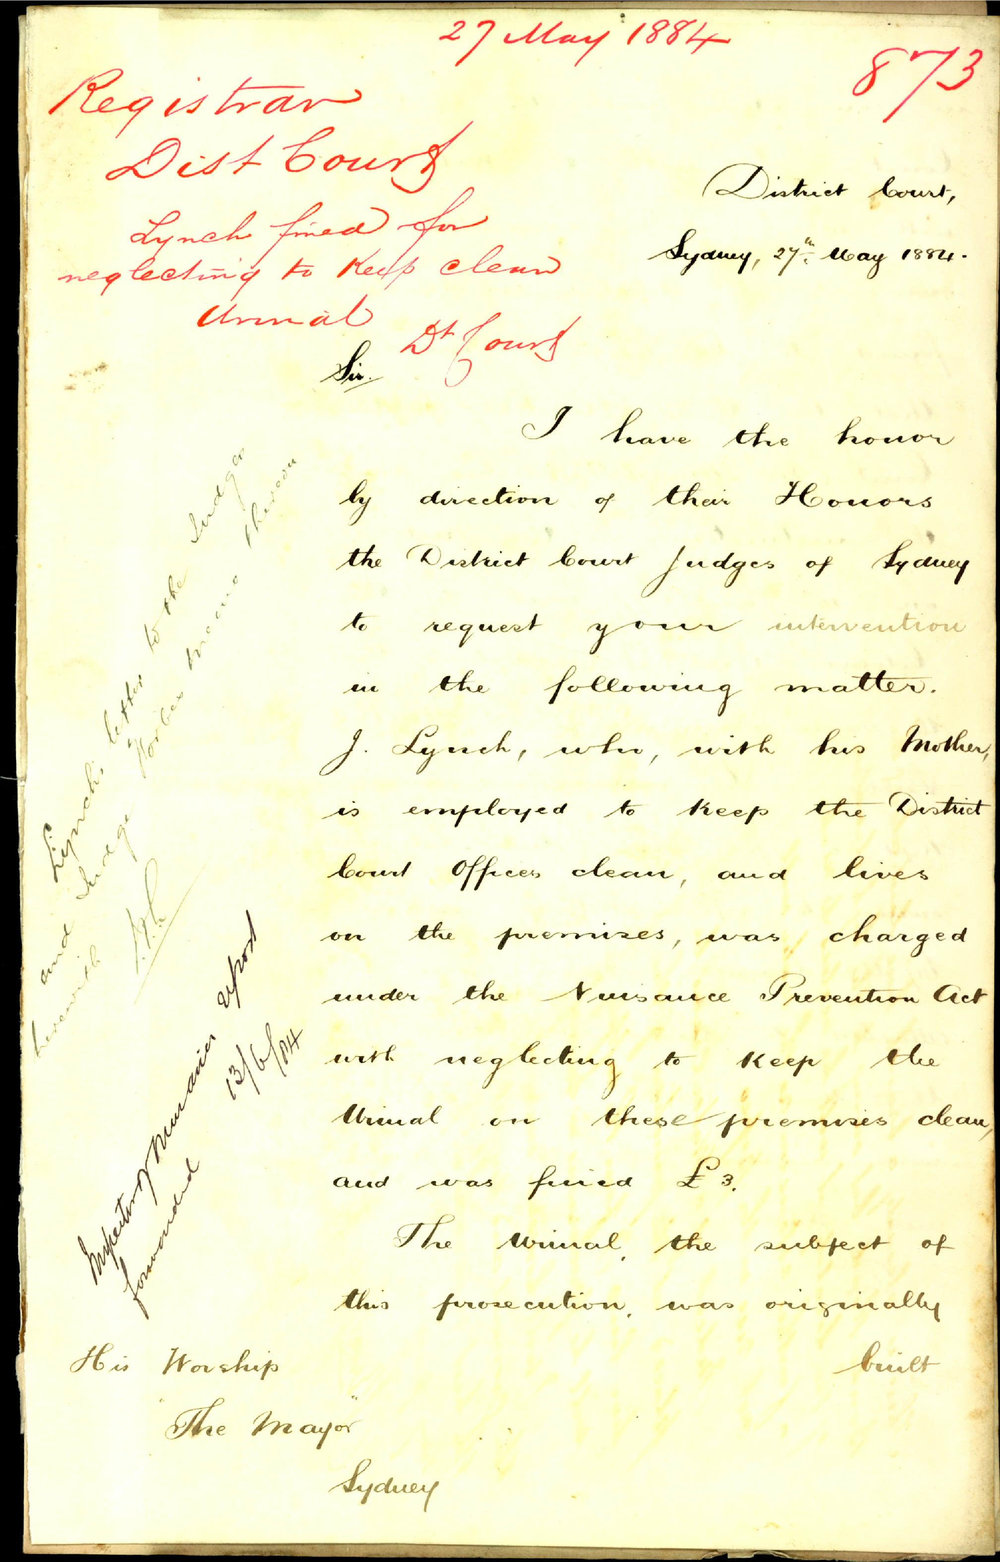 27 May 1884
873
Registrar
Dist Court
Lynch fined for
neglecting to Keep clean
Urinal
Dt Court
District Court,
Sydney, 27th May 1884.
Sir.
I have the honor
by direction of their Honors
the District Court Judges of Sydney
to request your intervention
in the following matter.
J. Lynch, who, with his Mother,
is employed to keep the District
Court Offices clean, and lives
on the premises, was charged
under the Nuisance Prevention Act
with neglecting to keep the
Urinal on these premises clean,
and was fined £3.
The Urinal, the subject of
this prosecution, was originally
built
His Worship
"The Mayor"
Sydney
Lynch's letter to the Judges
and Judge memo thereon
herewith
Inspector of Nuisances report
forwarded 13/6/84